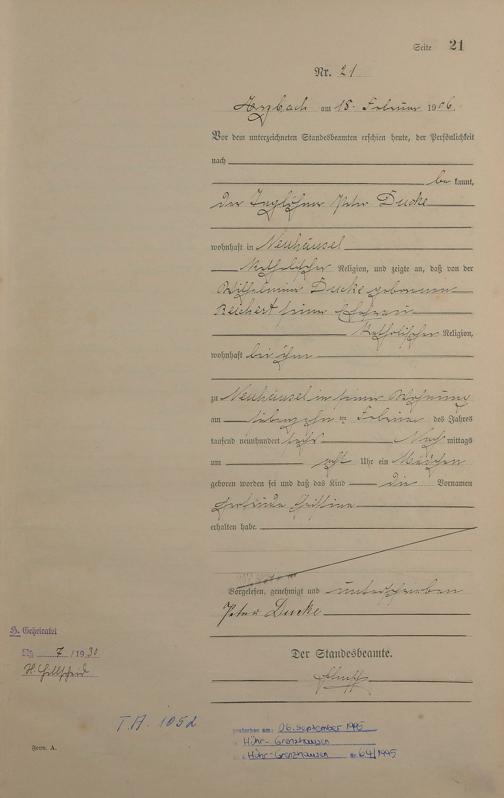 Seite 21
Nr. 21
am 18. Februar 1906.
Vor dem unterzeichneten Standesbeamten erschien heute, der Persönlichkeit
nach
be kannt,
der Taglöhner Peter Ducke
wohnhaft in Neuhäusel
katholischer Religion, und zeigte an, daß von der
Wilhelmine Ducke geborenen
Reichert seiner Ehefrau
katholischer Religion,
wohnhaft bei ihm
zu Neuhäusel in seiner Wohnung
am siebzehn ten Februar des Jahres
tausend neunhundert sechs Nach mittags
um acht Uhr ein Mädchen
geboren worden sei und daß das Kind die Vornamen
Gertrude Christina
erhalten habe.
Vorgelesen, genehmigt und unterschrieben
Peter Ducke
Der Standesbeamte.
H. Geheiratet
Nr. 7/1930
St. Hillscheid
T.A. 1052
Form. A.
gestorben am: 26. September 1995
Höhr-Grenzhausen
Höhr-Grenzhausen Nr. 64/1995